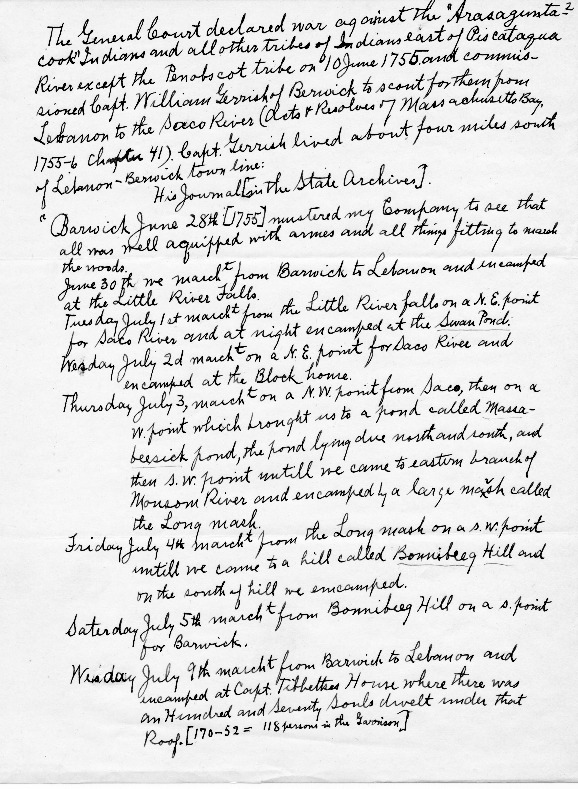 2
The General Court declared war against the "Arasagunta-
cook" Indians and all other tribes of Indians east of Piscataqua
River except the Penobscot tribe on "10 June 1755 and commis-
sioned Capt. William Gerrish of Berwick to scout for them from
Lebanon to the Saco River (Acts & Resolves of Massachusetts Bay,
1755-6 Chapter 41). Capt. Gerrish lived about four miles south
of Lebanon-Berwick town line:
His Journal [in the State Archives].
"Barwick June 28th [1755] mustered my Company to see that
all was well aquipped with armes and all things fitting to march
the woods.
June 30th we marcht from Barwick to Lebanon and incamped
at the Little River Falls.
Tuesday July 1st marcht from the Little River falls on a N.E. point
for Saco River and at night encamped at the Swan Pond.
Wesday July 2d marcht on a N.E. point for Saco River and
encamped at the Block house.
Thursday July 3, marcht on a N.W. point from Saco, then on a
W. point which brought us to a pond called Massa-
beesick pond, the pond lyng due north and south, and
then s.w. point untill we came to eastern branch of
Monsom River and encamped by a large mash called
the Long mash.
Friday July 4th marcht from the Long mash on a s.w. point
untill we came to a hill called Bonnibeeg Hill and
on the south of hill we emcamped.
Saterday July 5th marcht from Bonnibeeg Hill on a s. point
for Barwick.
Wesday July 9th marcht from Barwick to Lebanon and
incamped at Capt. Tibbettses House where there was
an Hundred and Seventy Souls dwelt under that
Roof. [170-52 = 118 persons in the Garrison]